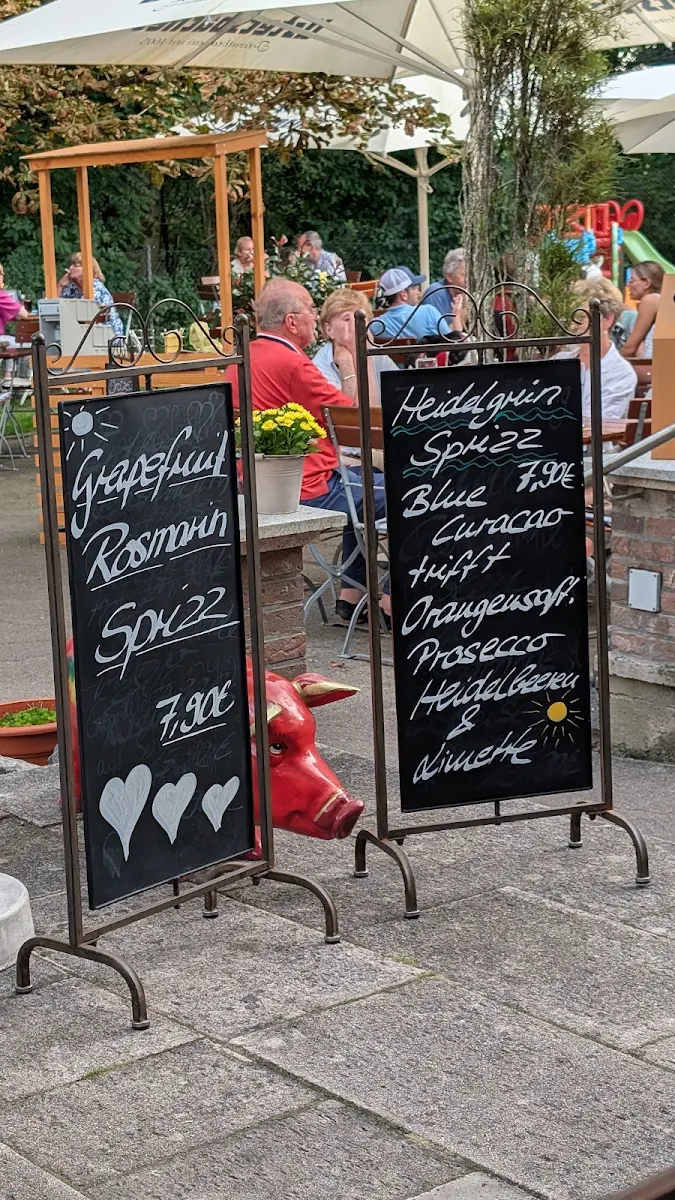 Grapefruit
Rosmarin
Sprizz
7,90€
Heidelgrün
Sprizz
7,90€
Blue
Curacao
trifft
Orangensaft.
Prosecco
Heidelbeeren
&
Limette